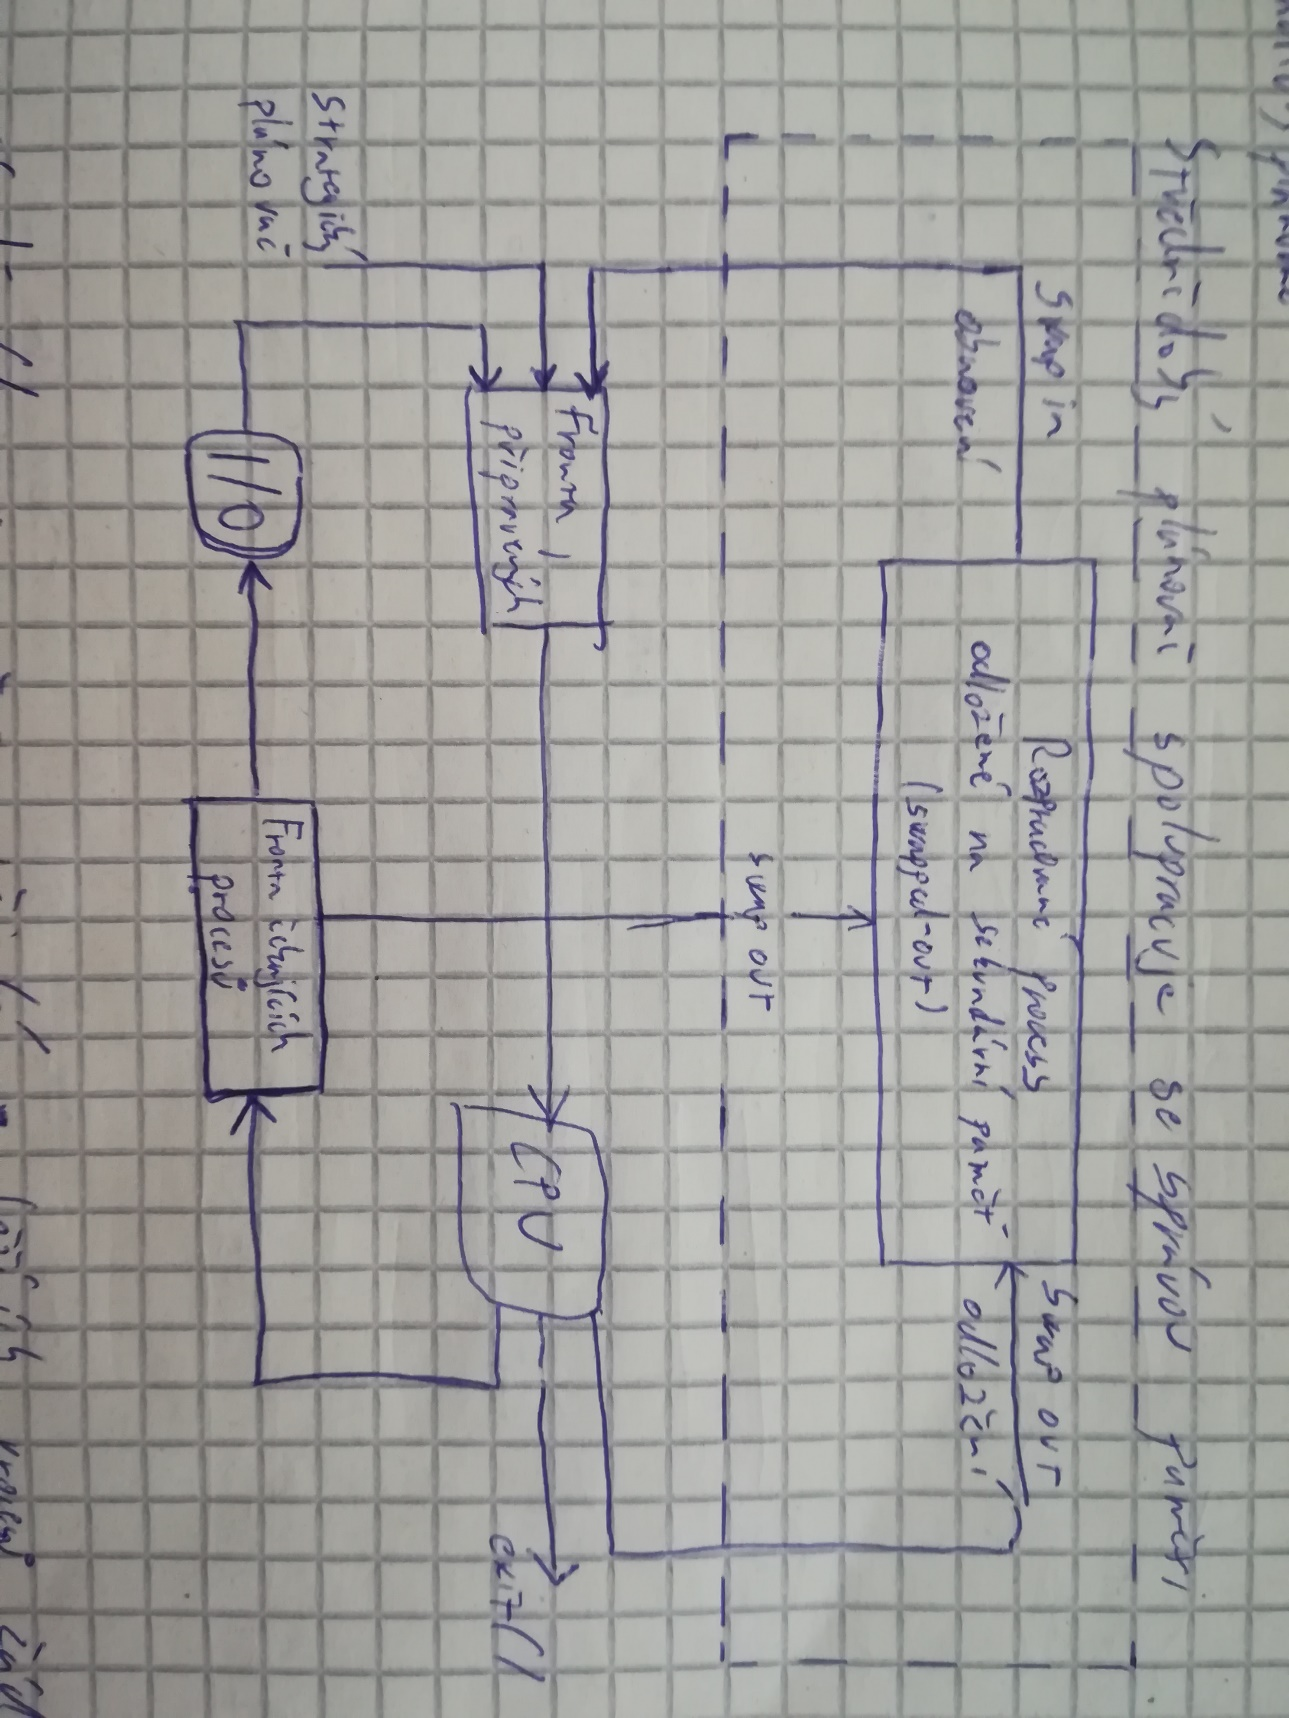 Střednědobý plánovač spolupracuje se správou paměti
swap in
obnovení
Rozpracované procesy
odložené na sekundární paměť
(swapped-out)
swap out
odložení
swap out
Strategický
plánovač
Fronta
připravených
CPU
exit()
I/O
Fronta čekajících
procesů